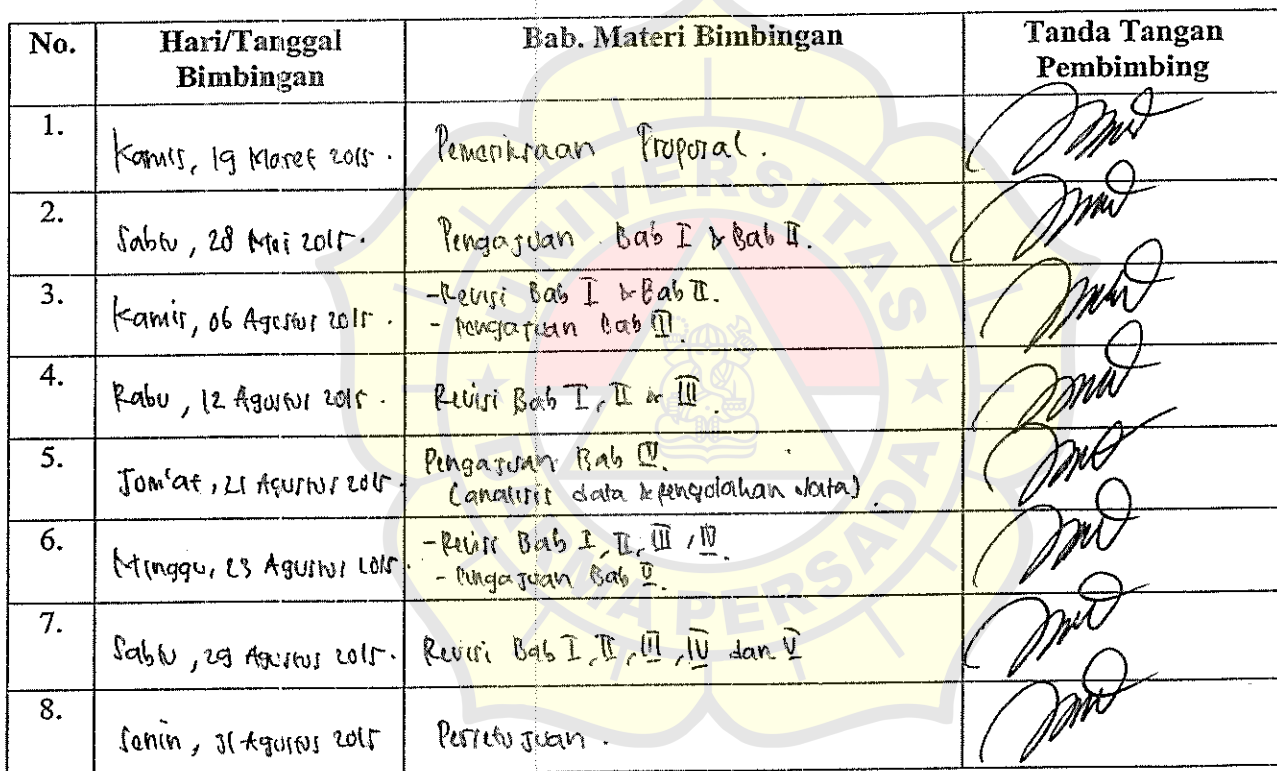 No.
Hari/Tanggal
Bimbingan
Bab. Materi Bimbingan
Tanda Tangan
Pembimbing
1.
Kamis, 19 Maret 2015.
Pemeriksaan Proposal.
2.
Sabtu, 28 Mei 2015.
Pengajuan Bab I & Bab II.
3.
Kamis, 06 Agustus 2015.
-Revisi Bab I & Bab II.
- Pengajuan Bab III.
4.
Rabu, 12 Agustus 2015.
Revisi Bab I, II & III.
5.
Jum'at, 21 Agustus 2015.
Pengajuan Bab IV.
(analisis data & pengolahan data)
6.
Minggu, 23 Agustus 2015.
-Revisi Bab I, II, III, IV.
- Pengajuan Bab V.
7.
Sabtu, 29 Agustus 2015.
Revisi Bab I, II, III, IV dan V
8.
Senin, 31 Agustus 2015
Persetujuan.
UNIVERSITAS
DARMA PERSADA